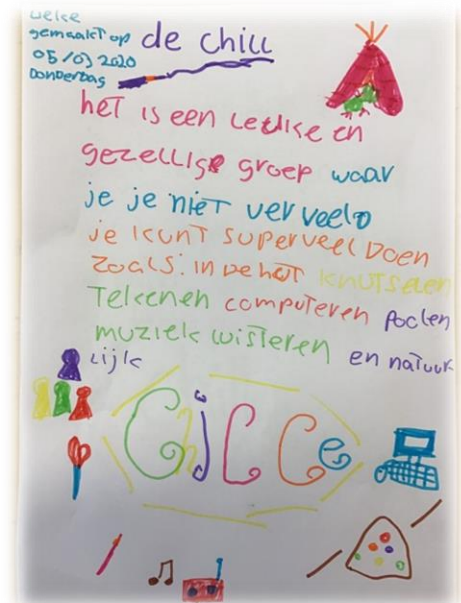 Welke
gemaakt op
05/03 2020
Donderdag
de chill
het is een leukke en
gezellige groep waar
je je niet verveeld
je kunt superveel Doen
zoals: in de hut knutselen
Tekenen computeren poolen
muziek luisteren en natuur
lijk
Chillen